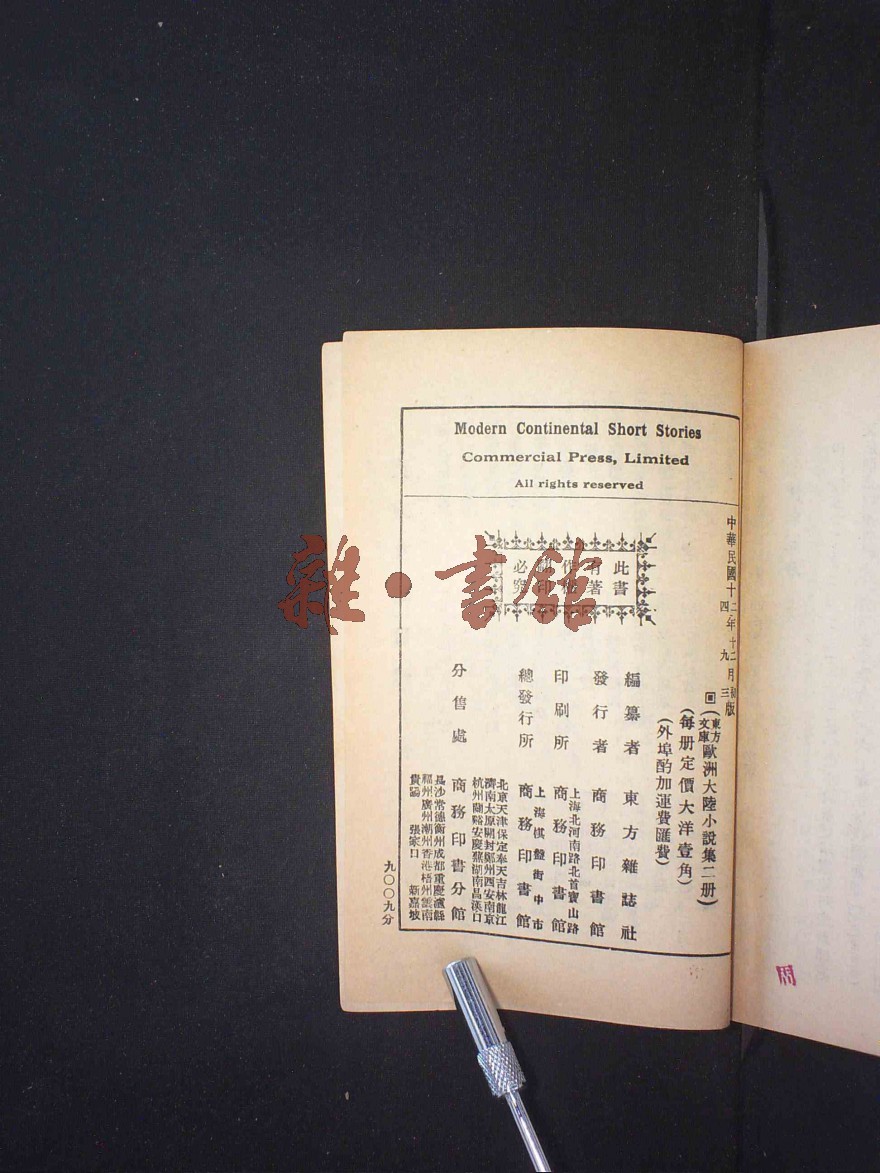 Modern Continental Short Stories
Commercial Press, Limited
All rights reserved
中華民國十二年十二月初版
四 九 三
此書
有著
作權
翻印
必究
回(東方文庫)歐洲大陸小說集二册
(每册定價大洋壹角)
(外埠酌加運費匯費)
編纂者 東方雜誌社
發行者 商務印書館
印刷所 上海北河南路北首寶山路 商務印書館
總發行所 上海棋盤街中市 商務印書館
分售處 商務印書分館
北京天津保定奉天吉林龍江
濟南太原開封鄭州西安南京
杭州蘭谿安慶蕪湖南昌漢口
長沙常德衡州成都重慶瀘縣
福州廣州潮州香港梧州雲南
貴陽 張家口 新嘉坡
九〇〇九分
雜·書館